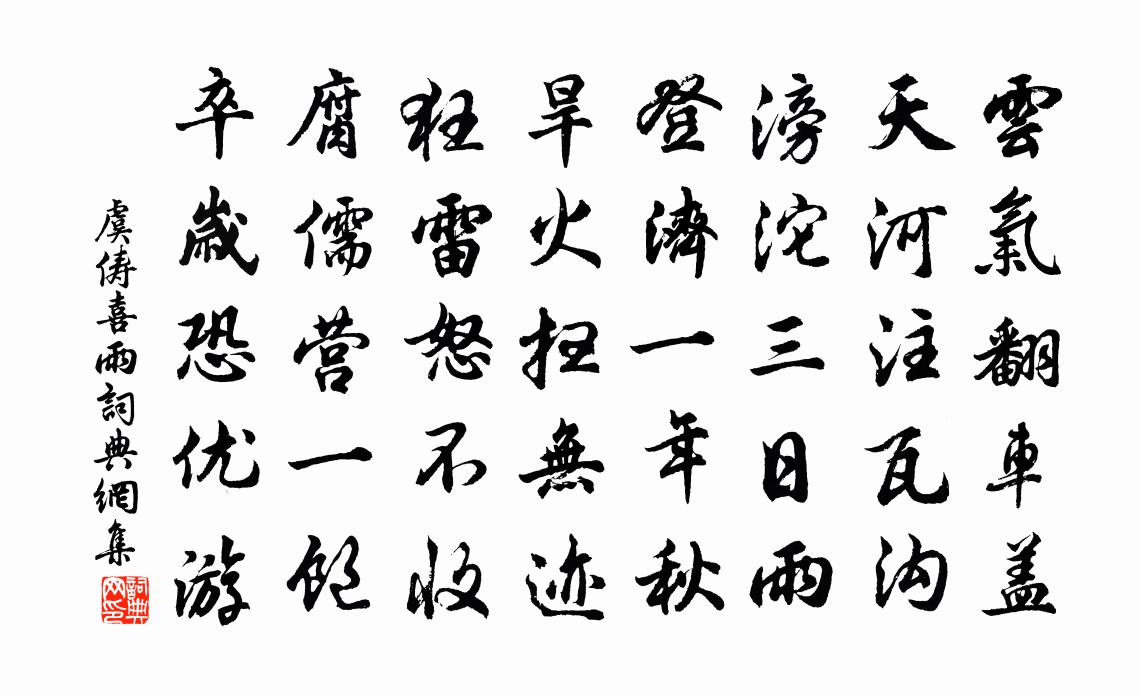 雲氣翻車盖
天河注瓦沟
滂沱三日雨
登濟一年秋
旱火扫無迹
狂雷怒不收
腐儒营一飽
卒歲恐优游
虞俦喜雨詞典網集
詞典网印